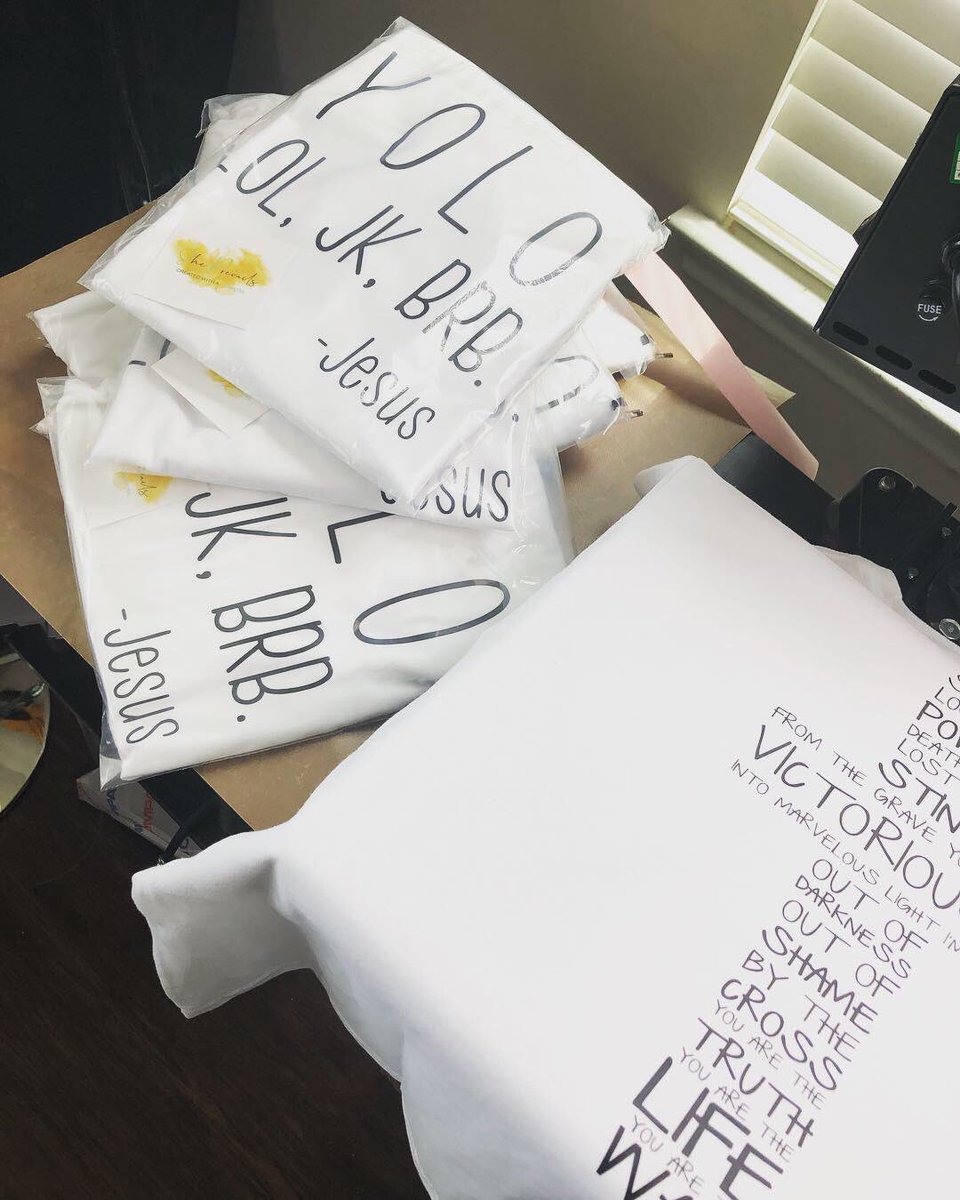 YOLO
LOL, JK, BRB.
-Jesus
She
CREATED WITH A
Jesus
L O
JK, BRB.
-Jesus
FUSE
DEATH
LOST
FROM THE GRAVE
VICTORIOUS
INTO MARVELOUS LIGHT
OUT OF
DARKNESS
OUT OF
SHAME
BY THE
CROSS
YOU ARE THE
TRUTH
YOU ARE THE
LIFE
YOU ARE